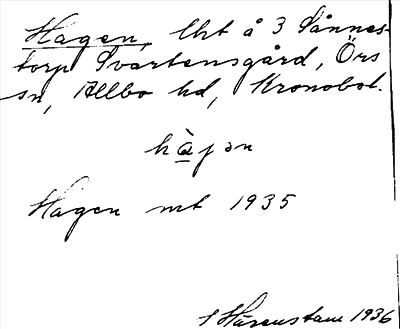 Hagen, lht å 3 Sånnes-
torp Svartensgård, Örs
sn, Allbo hd, Kronobol.
hàjən
Hagen mt 1935
Hårenstam 1936